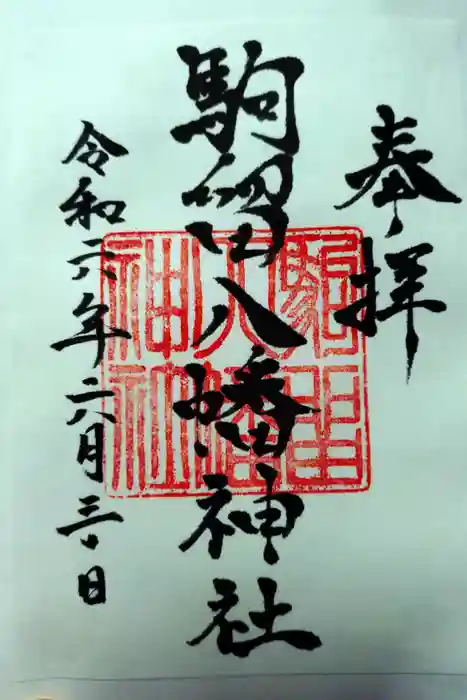 奉拝
駒留八幡神社
令和六年六月三日